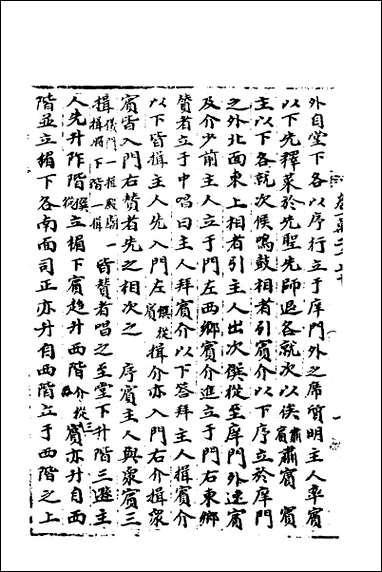 外自堂下各以序行立于庠門外之席質明主人率賓
以下先釋菜於先聖先師退各就次以俟肅賓 賓
主以下各就次候鳴鼓相者引賓介以下序立於庠門
之外北面東上相者引主人出次僎從至庠門外迓賓
及介少前主人立于門左西鄉賓介進立于門右東鄉
贊者立于中唱曰主人拜賓介以下答拜主人揖賓介
以下皆揖主人先入門左僎從賓揖介亦入門右介揖衆
賓皆入門右贊者先之相次之 序賓主人與衆賓三
揖儀門一揖殿廟一揖將下階一揖皆贊者唱之至堂下升階三遜主
人先升阼階僎從立楣下賓趋升西階介從三賓亦升自西
階並立楣下各南面司正亦升自西階立于西階之上